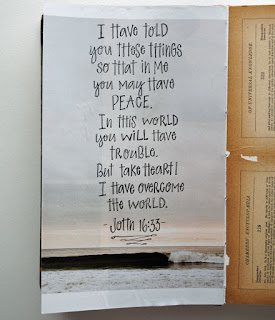 I HAVE TOLD
YOU THESE THINGS
SO THAT IN ME
YOU MAY HAVE
PEACE.
IN THIS WORLD
YOU WILL HAVE
TROUBLE.
BUT TAKE HEART!
I HAVE OVERCOME
THE WORLD.
JOHN 16:33
OF UNIVERSAL KNOWLEDGE